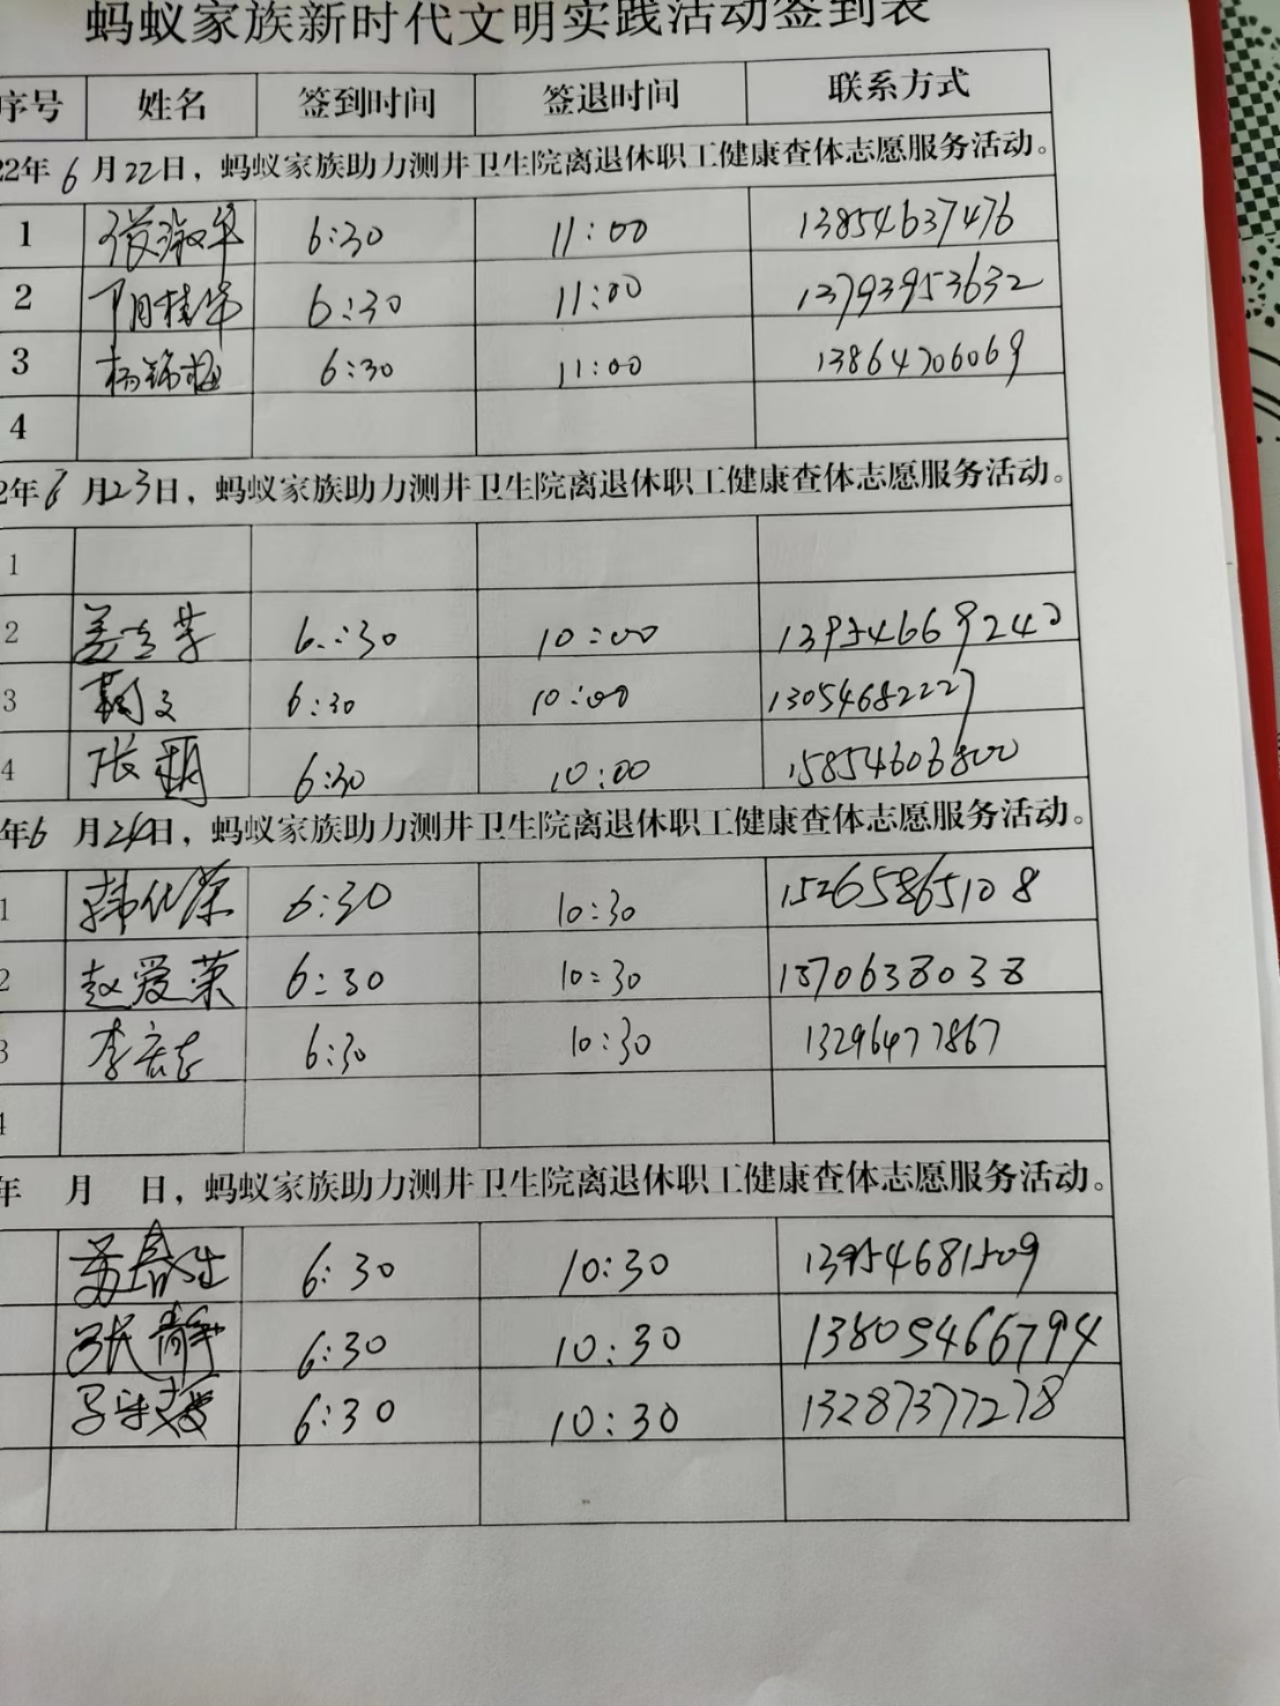 蚂蚁家族新时代文明实践活动签到表
序号 姓名 签到时间 签退时间 联系方式
22年6月22日，蚂蚁家族助力测井卫生院离退休职工健康查体志愿服务活动。
1 张淑华 6:30 11:00 13854637476
2 桂华 6:30 11:00 13793953632
3 杨锦梅 6:30 11:00 13864706069
4
2年6月23日，蚂蚁家族助力测井卫生院离退休职工健康查体志愿服务活动。
1
2 6:30 10:00 13954669240
3 6:30 10:00 13054682227
4 张鹃 6:30 10:00 15854606800
年6月24日，蚂蚁家族助力测井卫生院离退休职工健康查体志愿服务活动。
1 韩化荣 6:30 10:30 15265865108
2 赵爱荣 6:30 10:30 1870638038
3 李宏志 6:30 10:30 13296477867
4
年 月 日，蚂蚁家族助力测井卫生院离退休职工健康查体志愿服务活动。
6:30 10:30 13954681509
张静 6:30 10:30 13805466794
6:30 10:30 13287377278